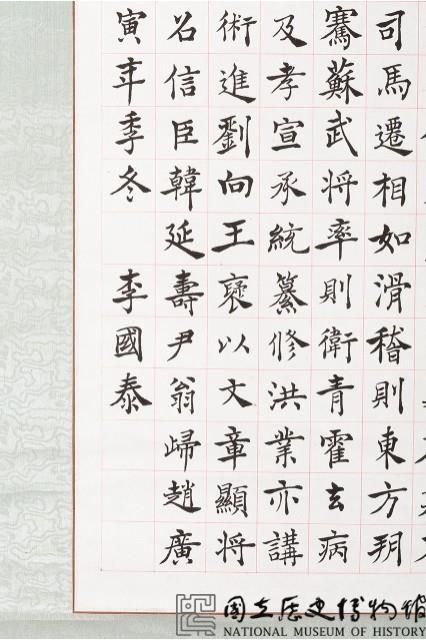 司馬遷相如滑稽則東方朔
騫蘇武將率則衛青霍玄病
及孝宣承統纂修洪業亦講
術進劉向王襃以文章顯將
召信臣韓延壽尹翁歸趙廣
寅年季冬 李國泰
國立歷史博物館
NATIONAL MUSEUM OF HISTORY